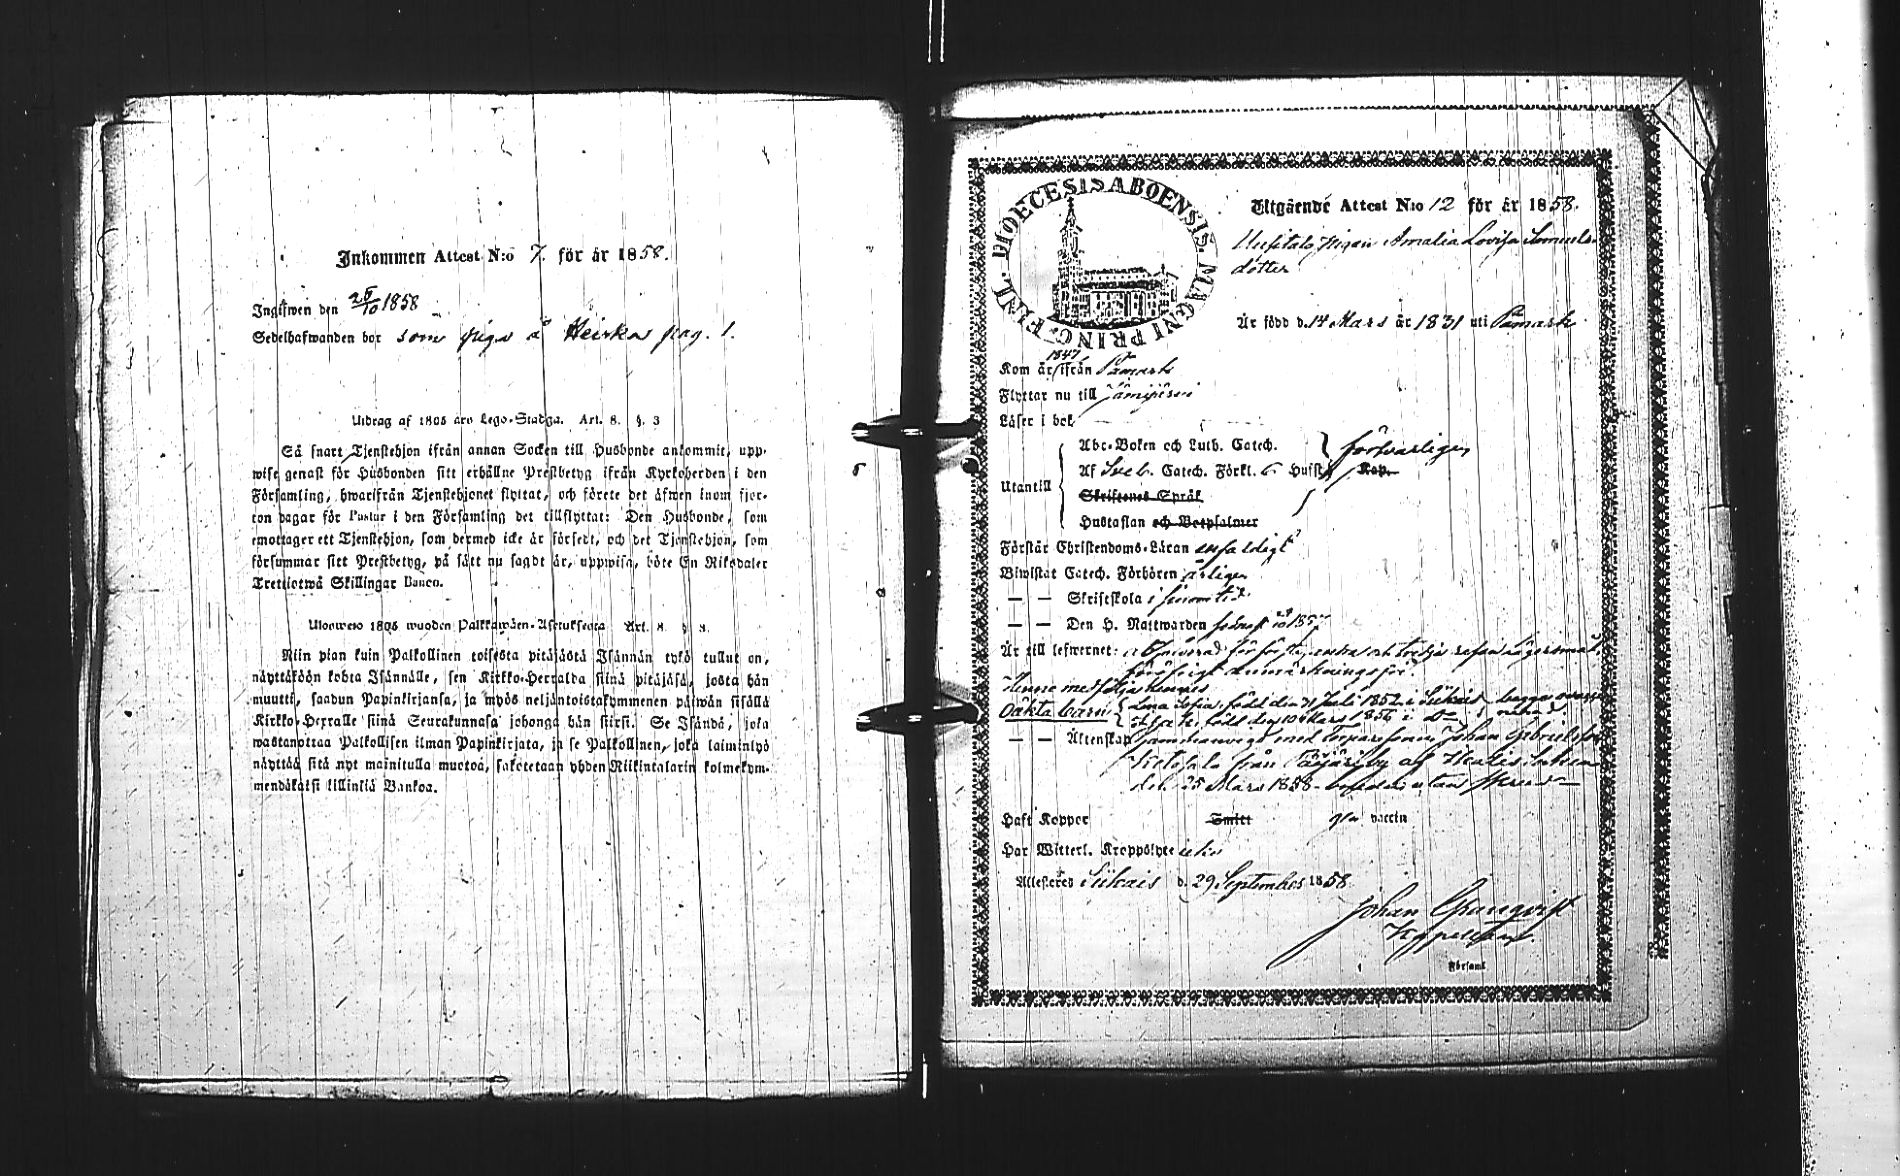 Inkommen Attest N:o 7. för år 1858.
Ingifwen den 25/10 1858
Sedelhafwanden bor som piga å Heiska pag. 1.
Utdrag af 1805 års Lego-Stadga. Art. 8. §. 3
Så snart Tjenstehjon ifrån annan Socken till Husbonde ankommit, upp-
wise genast för Husbonden sitt erhållne Prestbetyg ifrån Kyrkoherden i den
Församling, hwarifrån Tjenstehjonet flyttat, och förete det äfwen inom fjor-
ton dagar för Pastor i den Församling det tillflyttat: Den Husbonde, som
emottager ett Tjenstehjon, som dermed icke är försedt, och det Tjenstehjon, som
försummar sitt Prestbetyg, på sätt nu sagdt är, uppwisa, böte En Riksdaler
Trettiotwå Skillingar Banco.
Ulosweto 1805 wuoden Palkkawäen-Asetuksesta Art. 8. § 3.
Niin pian kuin Palkollinen toisesta pitäjästä Isännän tykö tullut on,
näyttäköön kohta Isännälle, sen Kirkko-Herralda siinä pitäjäsä, josta hän
muutti, saadun Papinkirjansa, ja myös neljäntoistakymmenen päiwän sisällä
Kirkko-Herralle siinä Seurakunnasa johonga hän siirsi. Se Isändä, joka
wastanottaa Palkollisen ilman Papinkirjata, ja se Palkollinen, joka laiminlyö
näyttää sitä nyt mainitulla muotoa, saketetaan yhden Riikintalarin kolmekym-
mendäkaksi killinkiä Bankoa.
FINL. DIOECESIS ABOENSIS. MAGNI PRINC.
Utgående Attest N:o 12 för år 1858.
pigan Amalia Lovisa Samuels-
dotter
Är född d. 14 Mars år 1831 uti Påmark
1847
Kom år ifrån Påmark
Flyttar nu till Jämijärvi
Läser i bok
Utantill
Abc-Boken och Luth. Catech.
försvarligen
Af Sveb. Catech. Förkl. 6 Hufst. Kap.
Skriftenes Språk
Hustaflan och Botpsalmer
Förstår Christendoms-Läran enfaldigt
Biwistat Catech. Förhören årligen
— — Skriftskola i sinom tid
— — Den H. Nattwarden sednast 1857
Är till lefwernet:
Henne medfölja hennes
Oäkta barn
Lina Sofia, född den 31 Juli 1852 i Siikais
född den 10 Mars 1856 i
— — Äktenskap med Johan Gabrielsson
från by af
d. 25 Mars 1858
Haft Koppor Smitt vaccin
Har Witterl. Kroppslyte icke
Attesteras Siikais d. 29 September 1858
Johan Granqvist
Kappellan.
i Församl